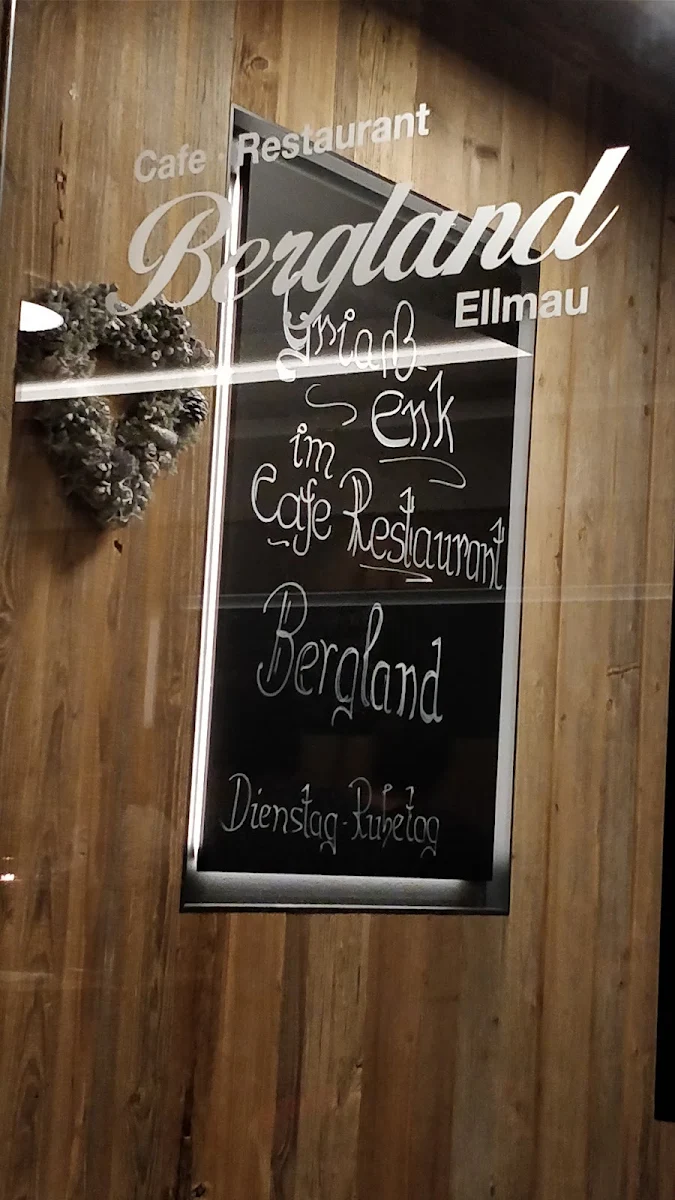 Cafe · Restaurant
Bergland
Ellmau
Griaß
Enk
im
Cafe Restaurant
Bergland
Dienstag - Ruhetag